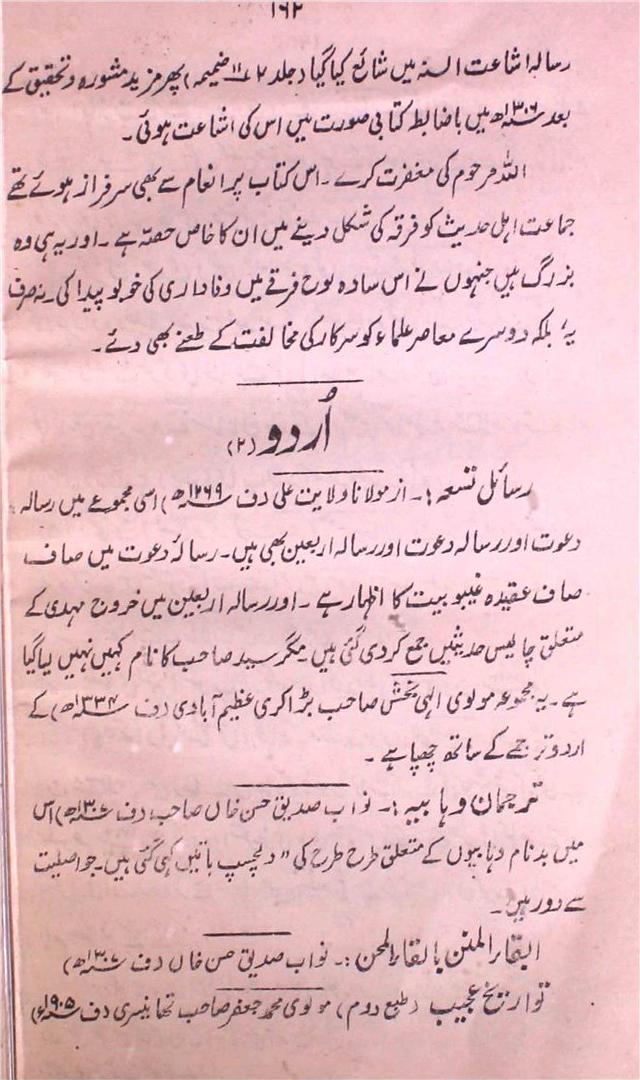 ۱۶۲
رسالہ اشاعت السنہ میں شائع کیا گیا (جلد ۲ ۱۱ ضمیمہ) پھر مزید مشورہ و تحقیق کے
بعد ۱۳۰۶ھ میں باضابطہ کتابی صورت میں اس کی اشاعت ہوئی۔
اللہ مرحوم کی مغفرت کرے۔ اس کتاب پر انعام سے بھی سرفراز ہوئے تھے
جماعت اہل حدیث کو فرقہ کی شکل دینے میں ان کا خاص حصہ ہے۔ اور یہ ہی وہ
بزرگ ہیں جنہوں نے اس سادہ لوح فرقے میں وفاداری کی خو بو پیدا کی۔ نہ صرف
یہ، بلکہ دوسرے معاصر علماء کو سرکار کی مخالفت کے طعنے بھی دئے۔
اُردو (۲)
رسائل تسعہ:۔ از مولانا ولایت علی (ف ۱۲۶۹ھ) اسی مجموعے میں رسالہ
دعوت اور رسالہ دعوت اور رسالہ اربعین بھی ہیں۔ رسالۂ دعوت میں صاف
صاف عقیدہ غیبوبیت کا اظہار ہے۔ اور رسالہ اربعین میں خروج مہدی کے
متعلق چالیس حدیثیں جمع کردی گئی ہیں مگر سید صاحب کا نام کہیں نہیں لیا گیا
ہے۔ یہ مجموعہ مولوی الٰہی بخش صاحب بڑاکری عظیم آبادی (ف ۱۳۳۴ھ) کے
اردو ترجمے کے ساتھ چھپا ہے۔
ترجمان وہابیہ:۔ نواب صدیق حسن خاں صاحب (ف ۱۳۰۷ھ) اس
میں بدنام وہابیوں کے متعلق طرح طرح کی "دلچسپ باتیں کہی گئی ہیں۔ جو اصلیت
سے دور ہیں۔
البقاء المنن بالقاء المحن:۔ نواب صدیق حسن خاں (ف ۱۳۰۷ھ)
تواریخ عجیب (طبع دوم) مولوی محمد جعفر صاحب تھانیسری (ف ۱۹۰۵ء)